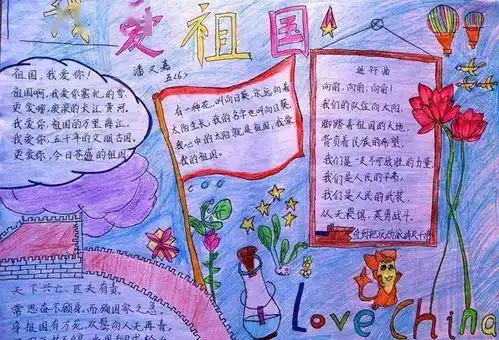 我爱祖国
潘又嘉
五(6)
祖国,我爱你!
祖国啊,我爱你塞北的雪,
更爱你滚滚的大江黄河,
我爱你,祖国的万里海江,
我爱你,五千年的文明古国,
更爱你,今日苍盛的祖国
有一种花,叫向日葵,永远向着
太阳生长,我的名字也叫向日葵,
我心中的太阳就是祖国,我爱
我的祖国。
进行曲
向前,向前,向前!
我们的队伍向太阳,
脚踏着祖国的大地,
背负着民族的希望,
我们是一支不可战胜的力量
我们是人民的子弟,
我们是人民的武装,
从无畏惧,英勇战斗,
天下兴亡,匹夫有责,
常思奋不顾身,而殉国家之急,
Love China